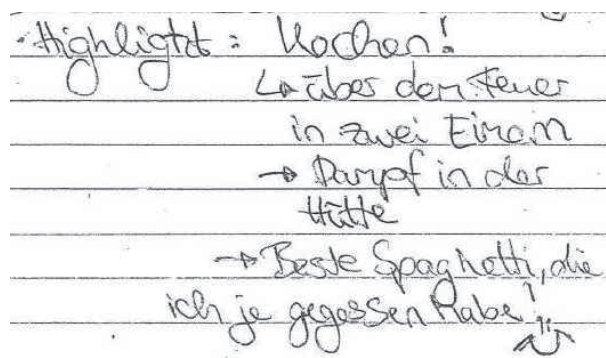 - Highlight: Kochen!
↳ über dem Feuer
in zwei Eimern
→ Dampf in der
Hütte
→ Beste Spaghetti, die
ich je gegessen habe!